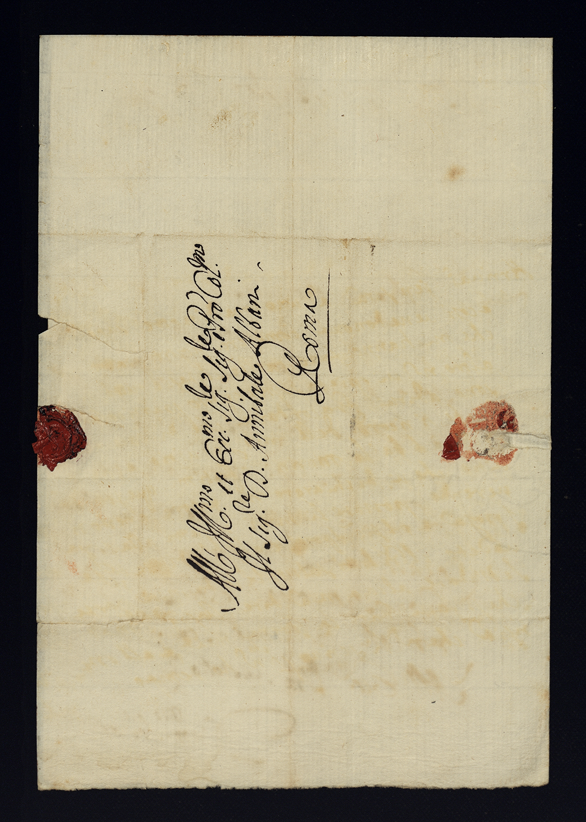 All' Ill.mo et Ecc.mo Sig.re Sig.re P.ron Col.mo
Il Sig.re D. Annibale Albani.
Roma